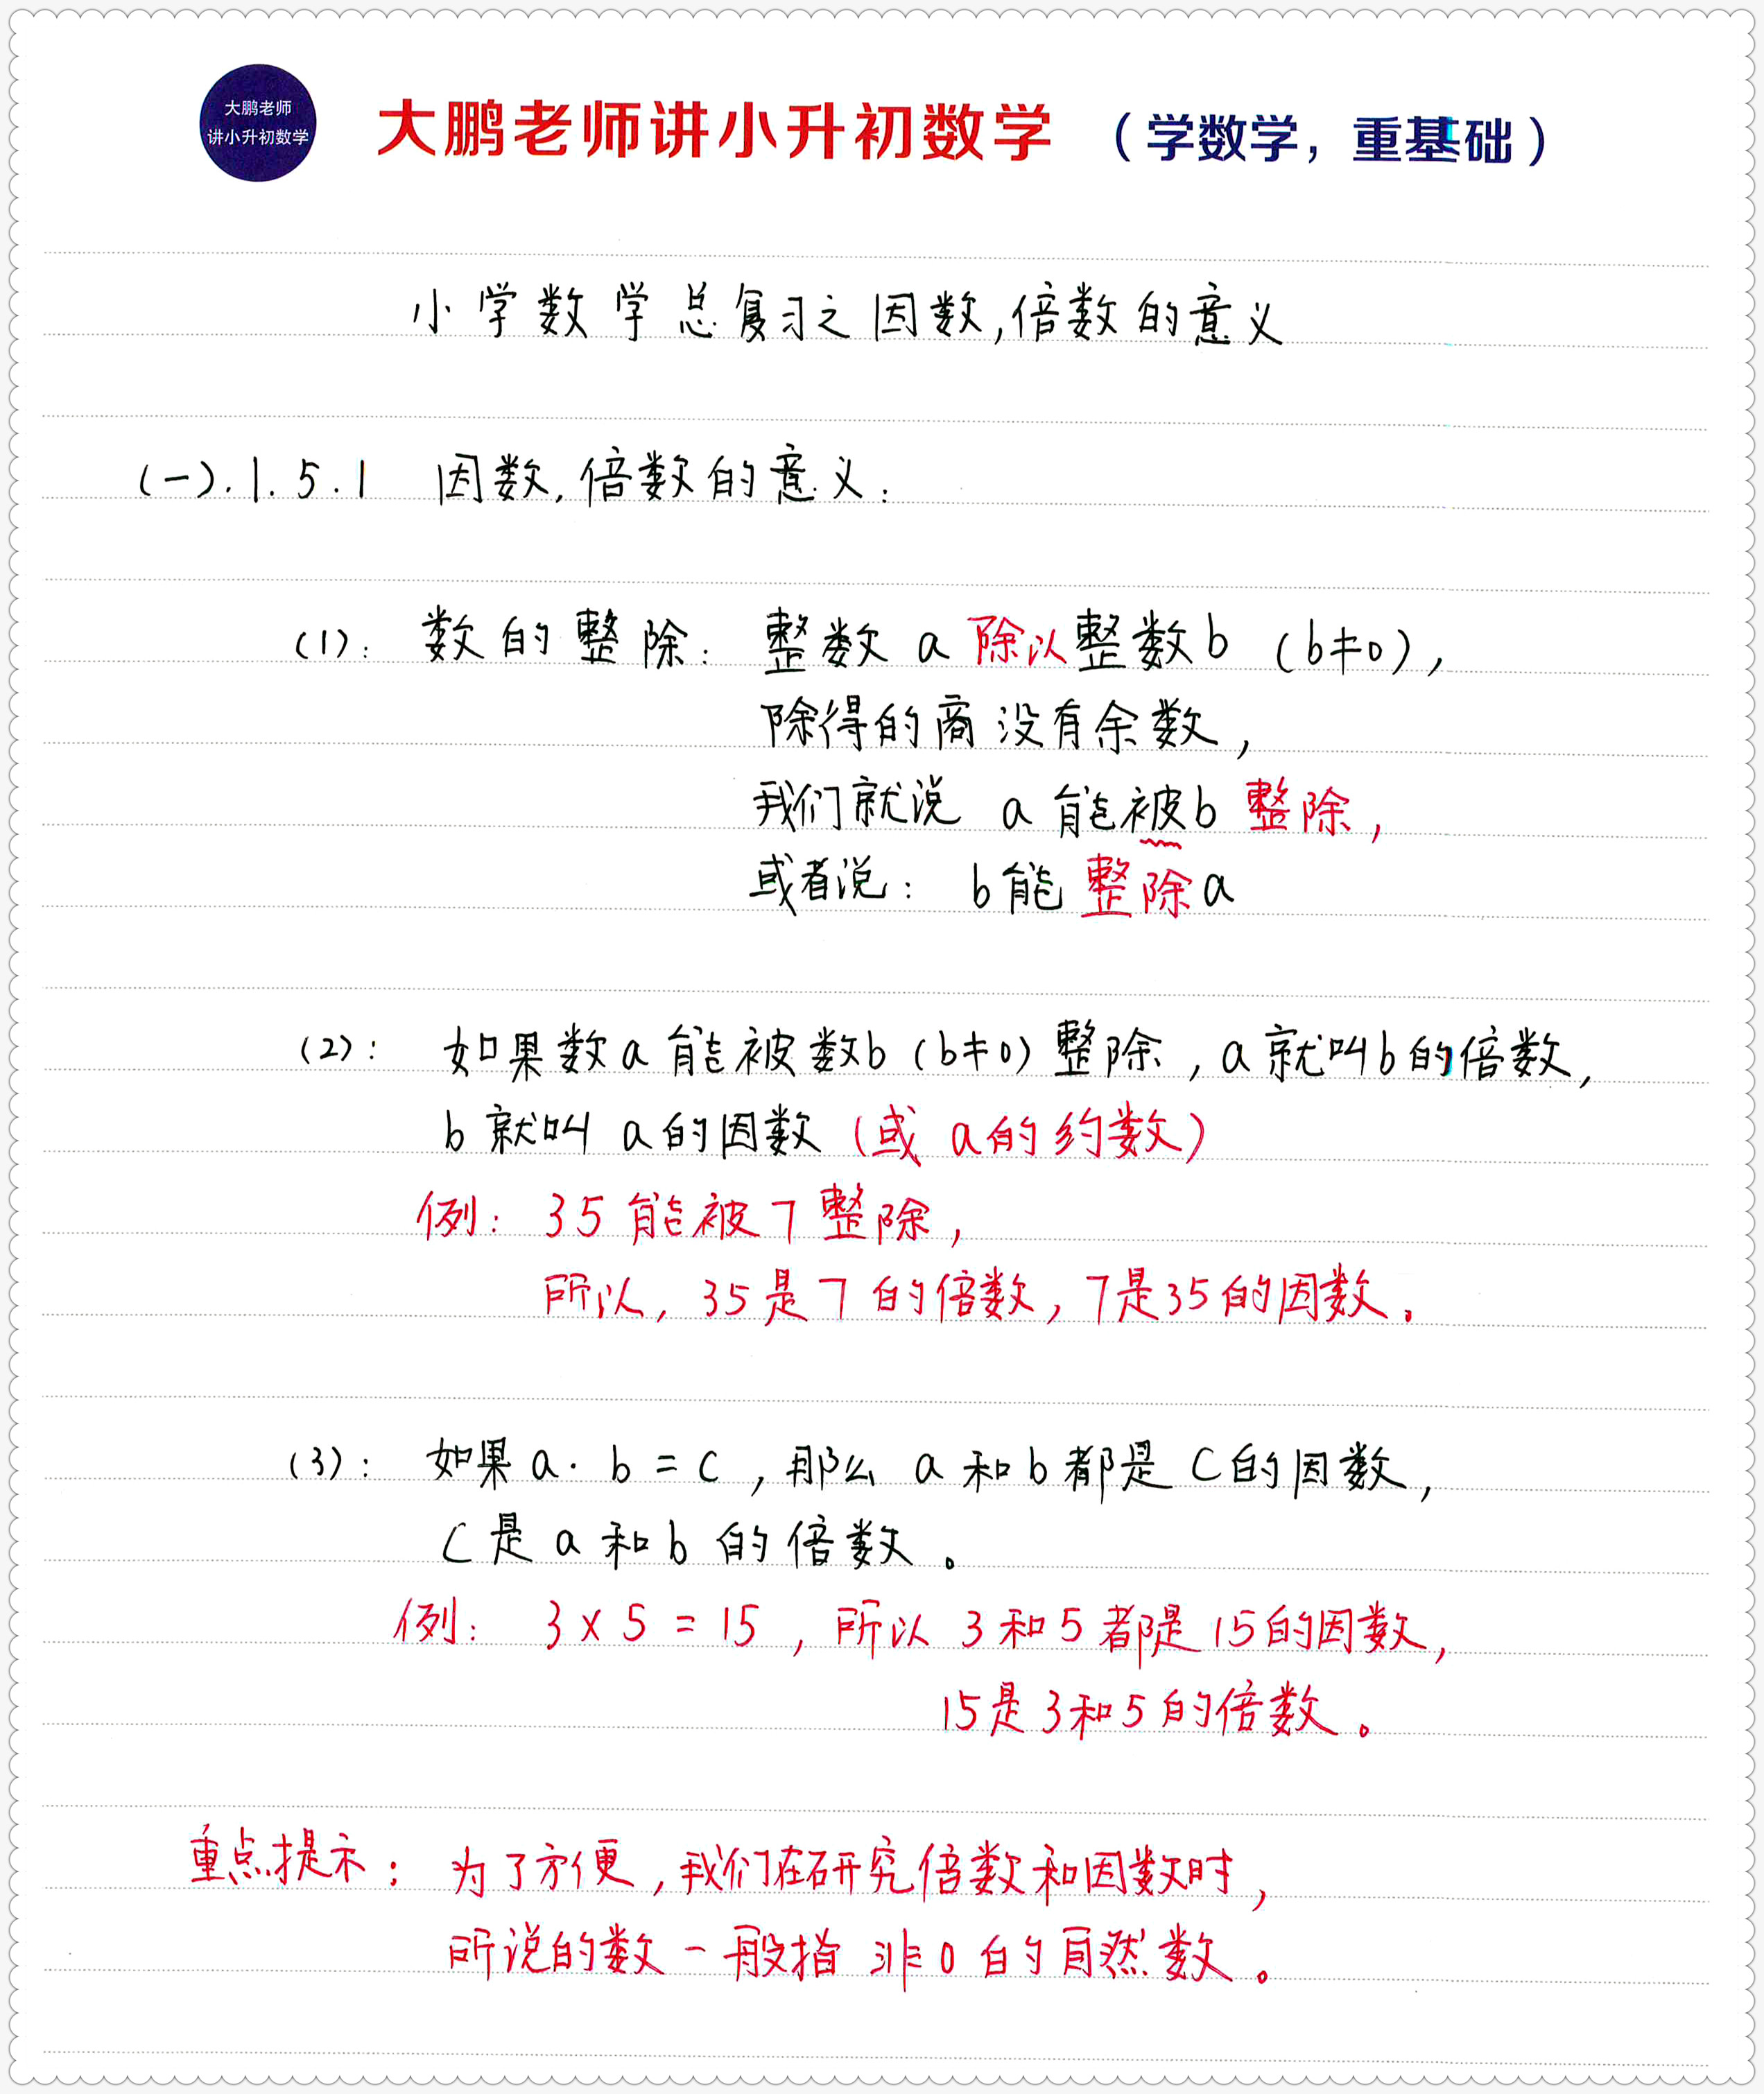 大鹏老师
讲小升初数学
大鹏老师讲小升初数学 （学数学，重基础）
小学数学总复习之因数,倍数的意义
(一).1.5.1 因数,倍数的意义:
(1): 数的整除: 整数a除以整数b (b≠0),
除得的商没有余数,
我们就说 a能被b整除,
或者说: b能整除a
(2): 如果数a能被数b(b≠0)整除,a就叫b的倍数,
b就叫a的因数(或a的约数)
例: 35能被7整除,
所以, 35是7的倍数, 7是35的因数。
(3): 如果a·b=c,那么a和b都是c的因数,
c是a和b的倍数。
例: 3×5=15,所以3和5都是15的因数,
15是3和5的倍数。
重点提示: 为了方便,我们在研究倍数和因数时,
所说的数一般指非0的自然数。